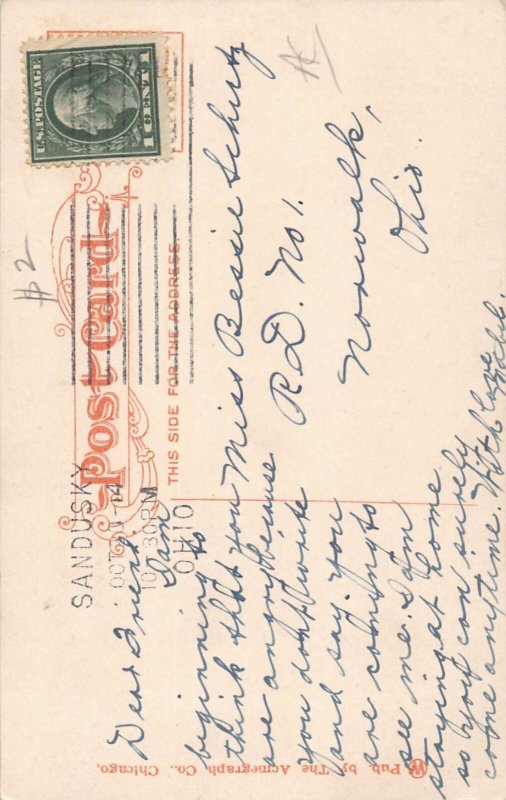 U.S. POSTAGE
1 CENT 1
#2
Post Card
THIS SIDE FOR THE ADDRESS.
SANDUSKY
OCT 14
10 30 PM
OHIO
Dear Friend
I am
beginning to
think that you
are angry because
you don't write
and say you
are coming to
see me. I am
staying at home
so you can surely
come anytime. With love
Miss Bessie Schutz
R.D. No 1.
Norwalk,
Ohio.
Pub. by The Acmegraph Co., Chicago,